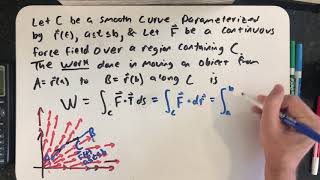 Let C be a smooth curve parameterized
by r⃗(t), a≤t≤b, & let F⃗ be a continuous
force field over a region containing C.
The work done in moving an object from
A=r⃗(a) to B=r⃗(b) along C is
W = ∫_C F⃗·T⃗ ds = ∫_C F⃗·dr⃗ = ∫_a^b
A
B
r⃗(t)
a≤t≤b